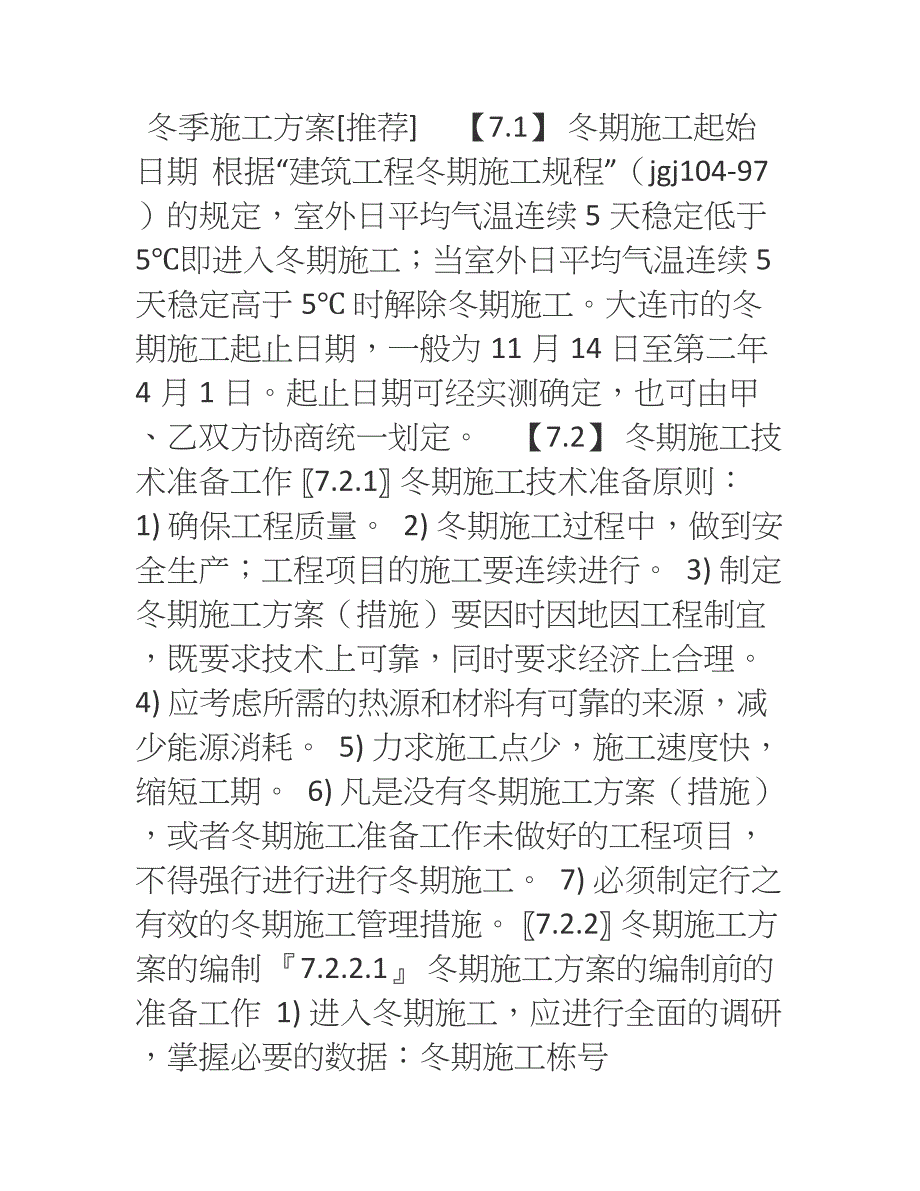 冬季施工方案[推荐] 【7.1】 冬期施工起始
日期 根据“建筑工程冬期施工规程”（jgj104-97
）的规定，室外日平均气温连续 5 天稳定低于
5℃即进入冬期施工；当室外日平均气温连续 5
天稳定高于 5℃ 时解除冬期施工。大连市的冬
期施工起止日期，一般为 11 月 14 日至第二年
4 月 1 日。起止日期可经实测确定，也可由甲
、乙双方协商统一划定。 【7.2】 冬期施工技
术准备工作〖7.2.1〗冬期施工技术准备原则：
1) 确保工程质量。 2) 冬期施工过程中，做到安
全生产；工程项目的施工要连续进行。 3) 制定
冬期施工方案（措施）要因时因地因工程制宜
，既要求技术上可靠，同时要求经济上合理。
4) 应考虑所需的热源和材料有可靠的来源，减
少能源消耗。 5) 力求施工点少，施工速度快，
缩短工期。 6) 凡是没有冬期施工方案（措施）
，或者冬期施工准备工作未做好的工程项目，
不得强行进行进行冬期施工。 7) 必须制定行之
有效的冬期施工管理措施。〖7.2.2〗冬期施工方
案的编制『7.2.2.1』 冬期施工方案的编制前的
准备工作 1) 进入冬期施工，应进行全面的调研
，掌握必要的数据：冬期施工栋号